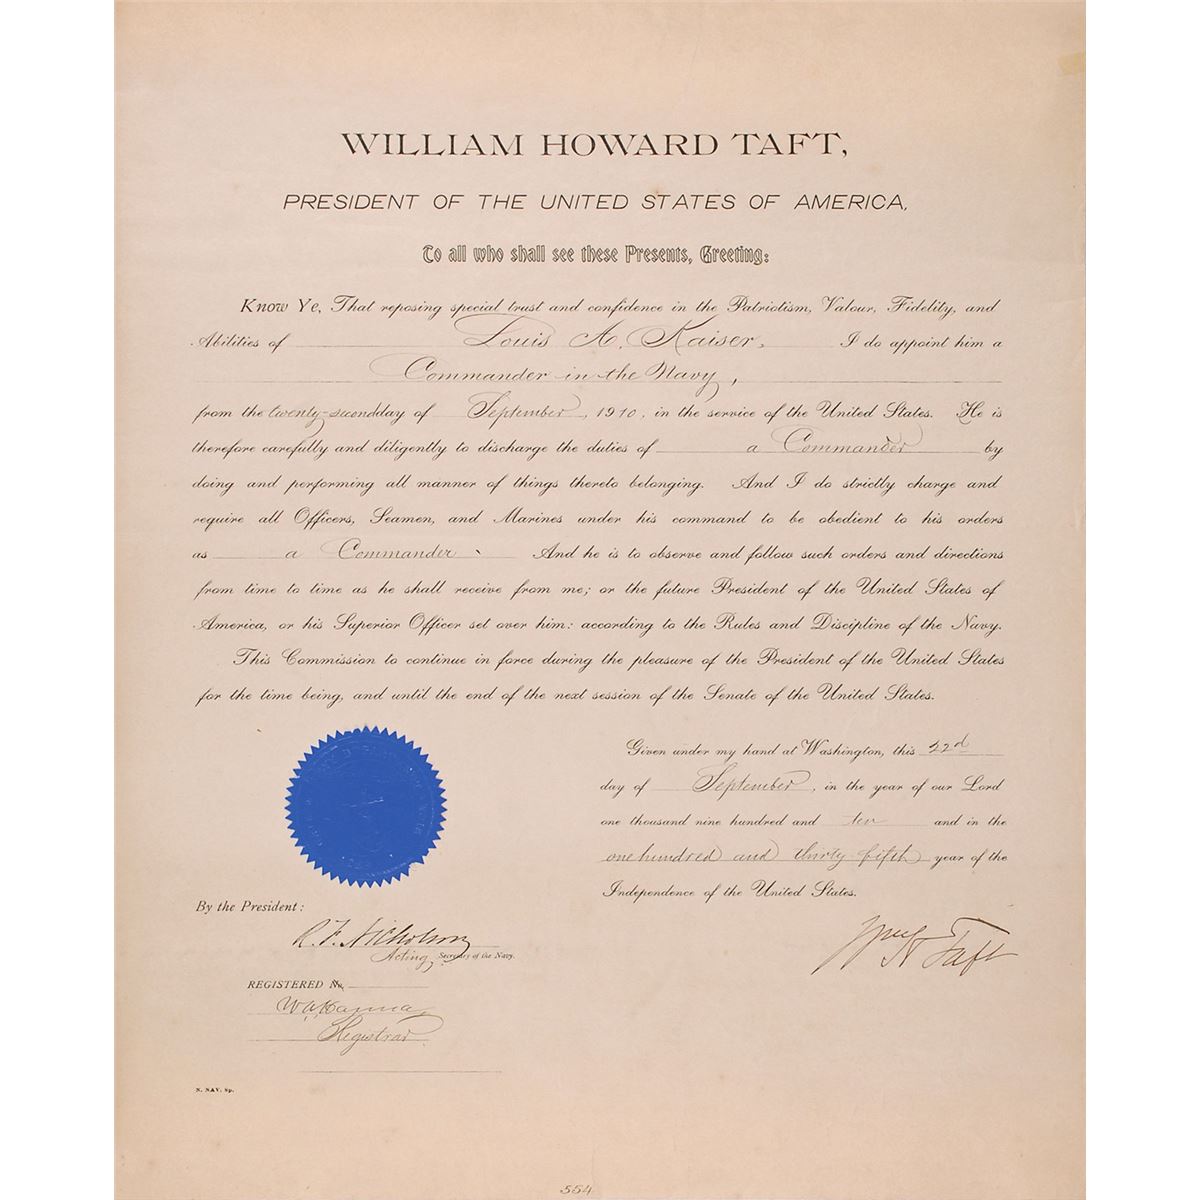 WILLIAM HOWARD TAFT,
PRESIDENT OF THE UNITED STATES OF AMERICA,
To all who shall see these Presents, Greeting:
Know Ye, That reposing special trust and confidence in the Patriotism, Valour, Fidelity, and
Abilities of Louis A. Kaiser, I do appoint him a
Commander in the Navy,
from the twenty-second day of September, 1910, in the service of the United States. He is
therefore carefully and diligently to discharge the duties of a Commander by
doing and performing all manner of things thereto belonging. And I do strictly charge and
require all Officers, Seamen, and Marines under his command to be obedient to his orders
as a Commander. And he is to observe and follow such orders and directions
from time to time as he shall receive from me; or the future President of the United States of
America, or his Superior Officer set over him: according to the Rules and Discipline of the Navy.
This Commission to continue in force during the pleasure of the President of the United States
for the time being, and until the end of the next session of the Senate of the United States.
Given under my hand at Washington, this 22d
day of September, in the year of our Lord
one thousand nine hundred and ten and in the
one hundred and thirty fifth year of the
Independence of the United States.
By the President:
R. F. Nicholson
Acting Secretary of the Navy.
Wm H Taft
REGISTERED No.
Registrar
N. NAV. Sp.
554